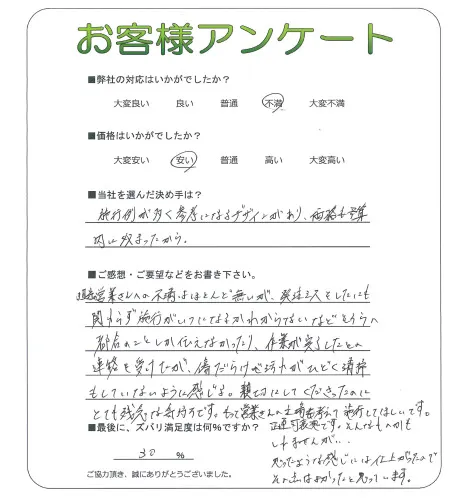 お客様アンケート
■弊社の対応はいかがでしたか？
大変良い 良い 普通 不満 大変不満
■価格はいかがでしたか？
大変安い 安い 普通 高い 大変高い
■当社を選んだ決め手は？
施行例が多く参考になるデザインがあり、価格も予算
内に収まったから。
■ご感想・ご要望などをお書き下さい。
営業さんへの不満はほとんど無いが、発注ミスをしたにも
関わらず施行がいつになるかわからないなどそちらの
都合のことしか伝えなかったり、作業が完了したとの
連絡を受けたが、傷だらけで汚れがひどく清掃
もしていないように感じる。親切にしてくださったのに
とても残念な気持ちです。もっと営業さんの立場を考えて施行してほしいです。
■最後に、ズバリ満足度は何%ですか？
正直可哀想です。そんなものかも
しれませんが…
30 %
思ったような感じには仕上がったので
その点はよかったと思っています。
ご協力頂き、誠にありがとうございました。